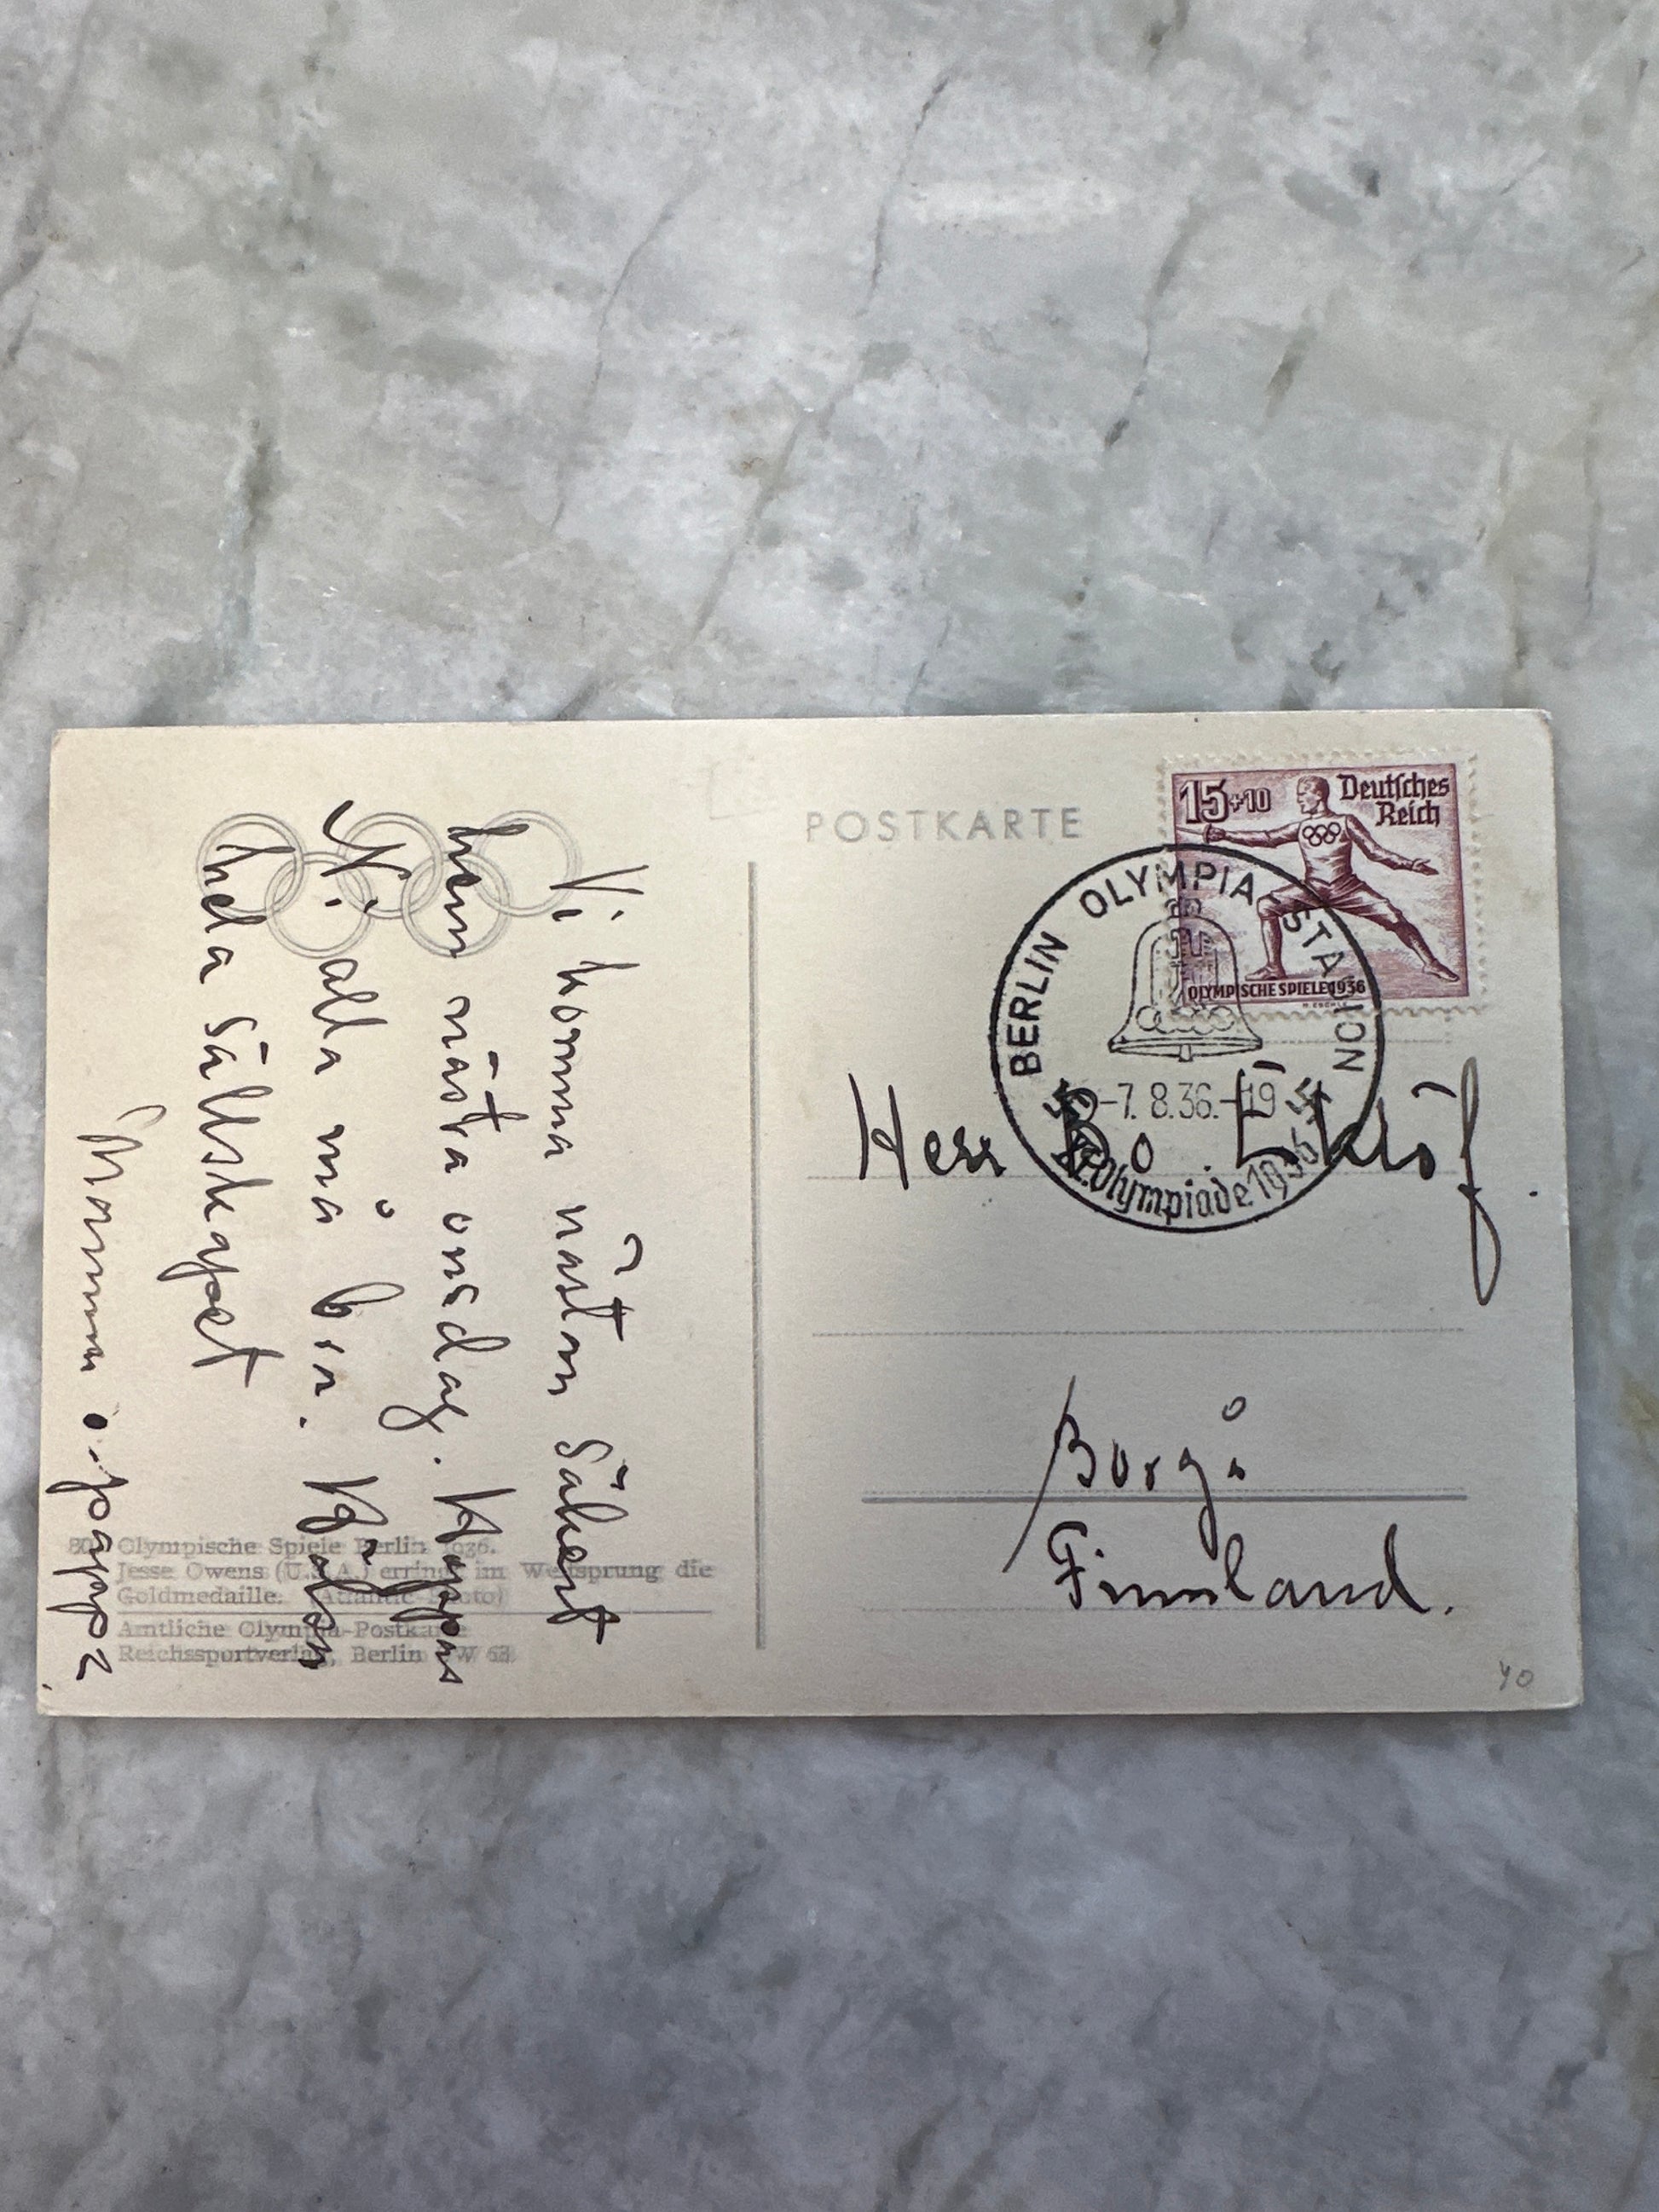 POSTKARTE
15+10 Deutsches
Reich
OLYMPISCHE SPIELE 1936
BERLIN OLYMPIA STADION
-7.8.36.-19
XI. Olympiade 1936
Herr Bo Eklöf.
Borgå
Finnland.
40
Vi komma nästan säkert
hem nästa onsdag. Hoppas
Ni alla må bra. Hälsn
hela sällskapet
Mamma o. pappa.
80 Olympische Spiele Berlin 1936.
Jesse Owens (U.S.A.) erringt im Weitsprung die
Goldmedaille. (Atlantic-Photo)
Amtliche Olympia-Postkarte
Reichssportverlag, Berlin SW 68